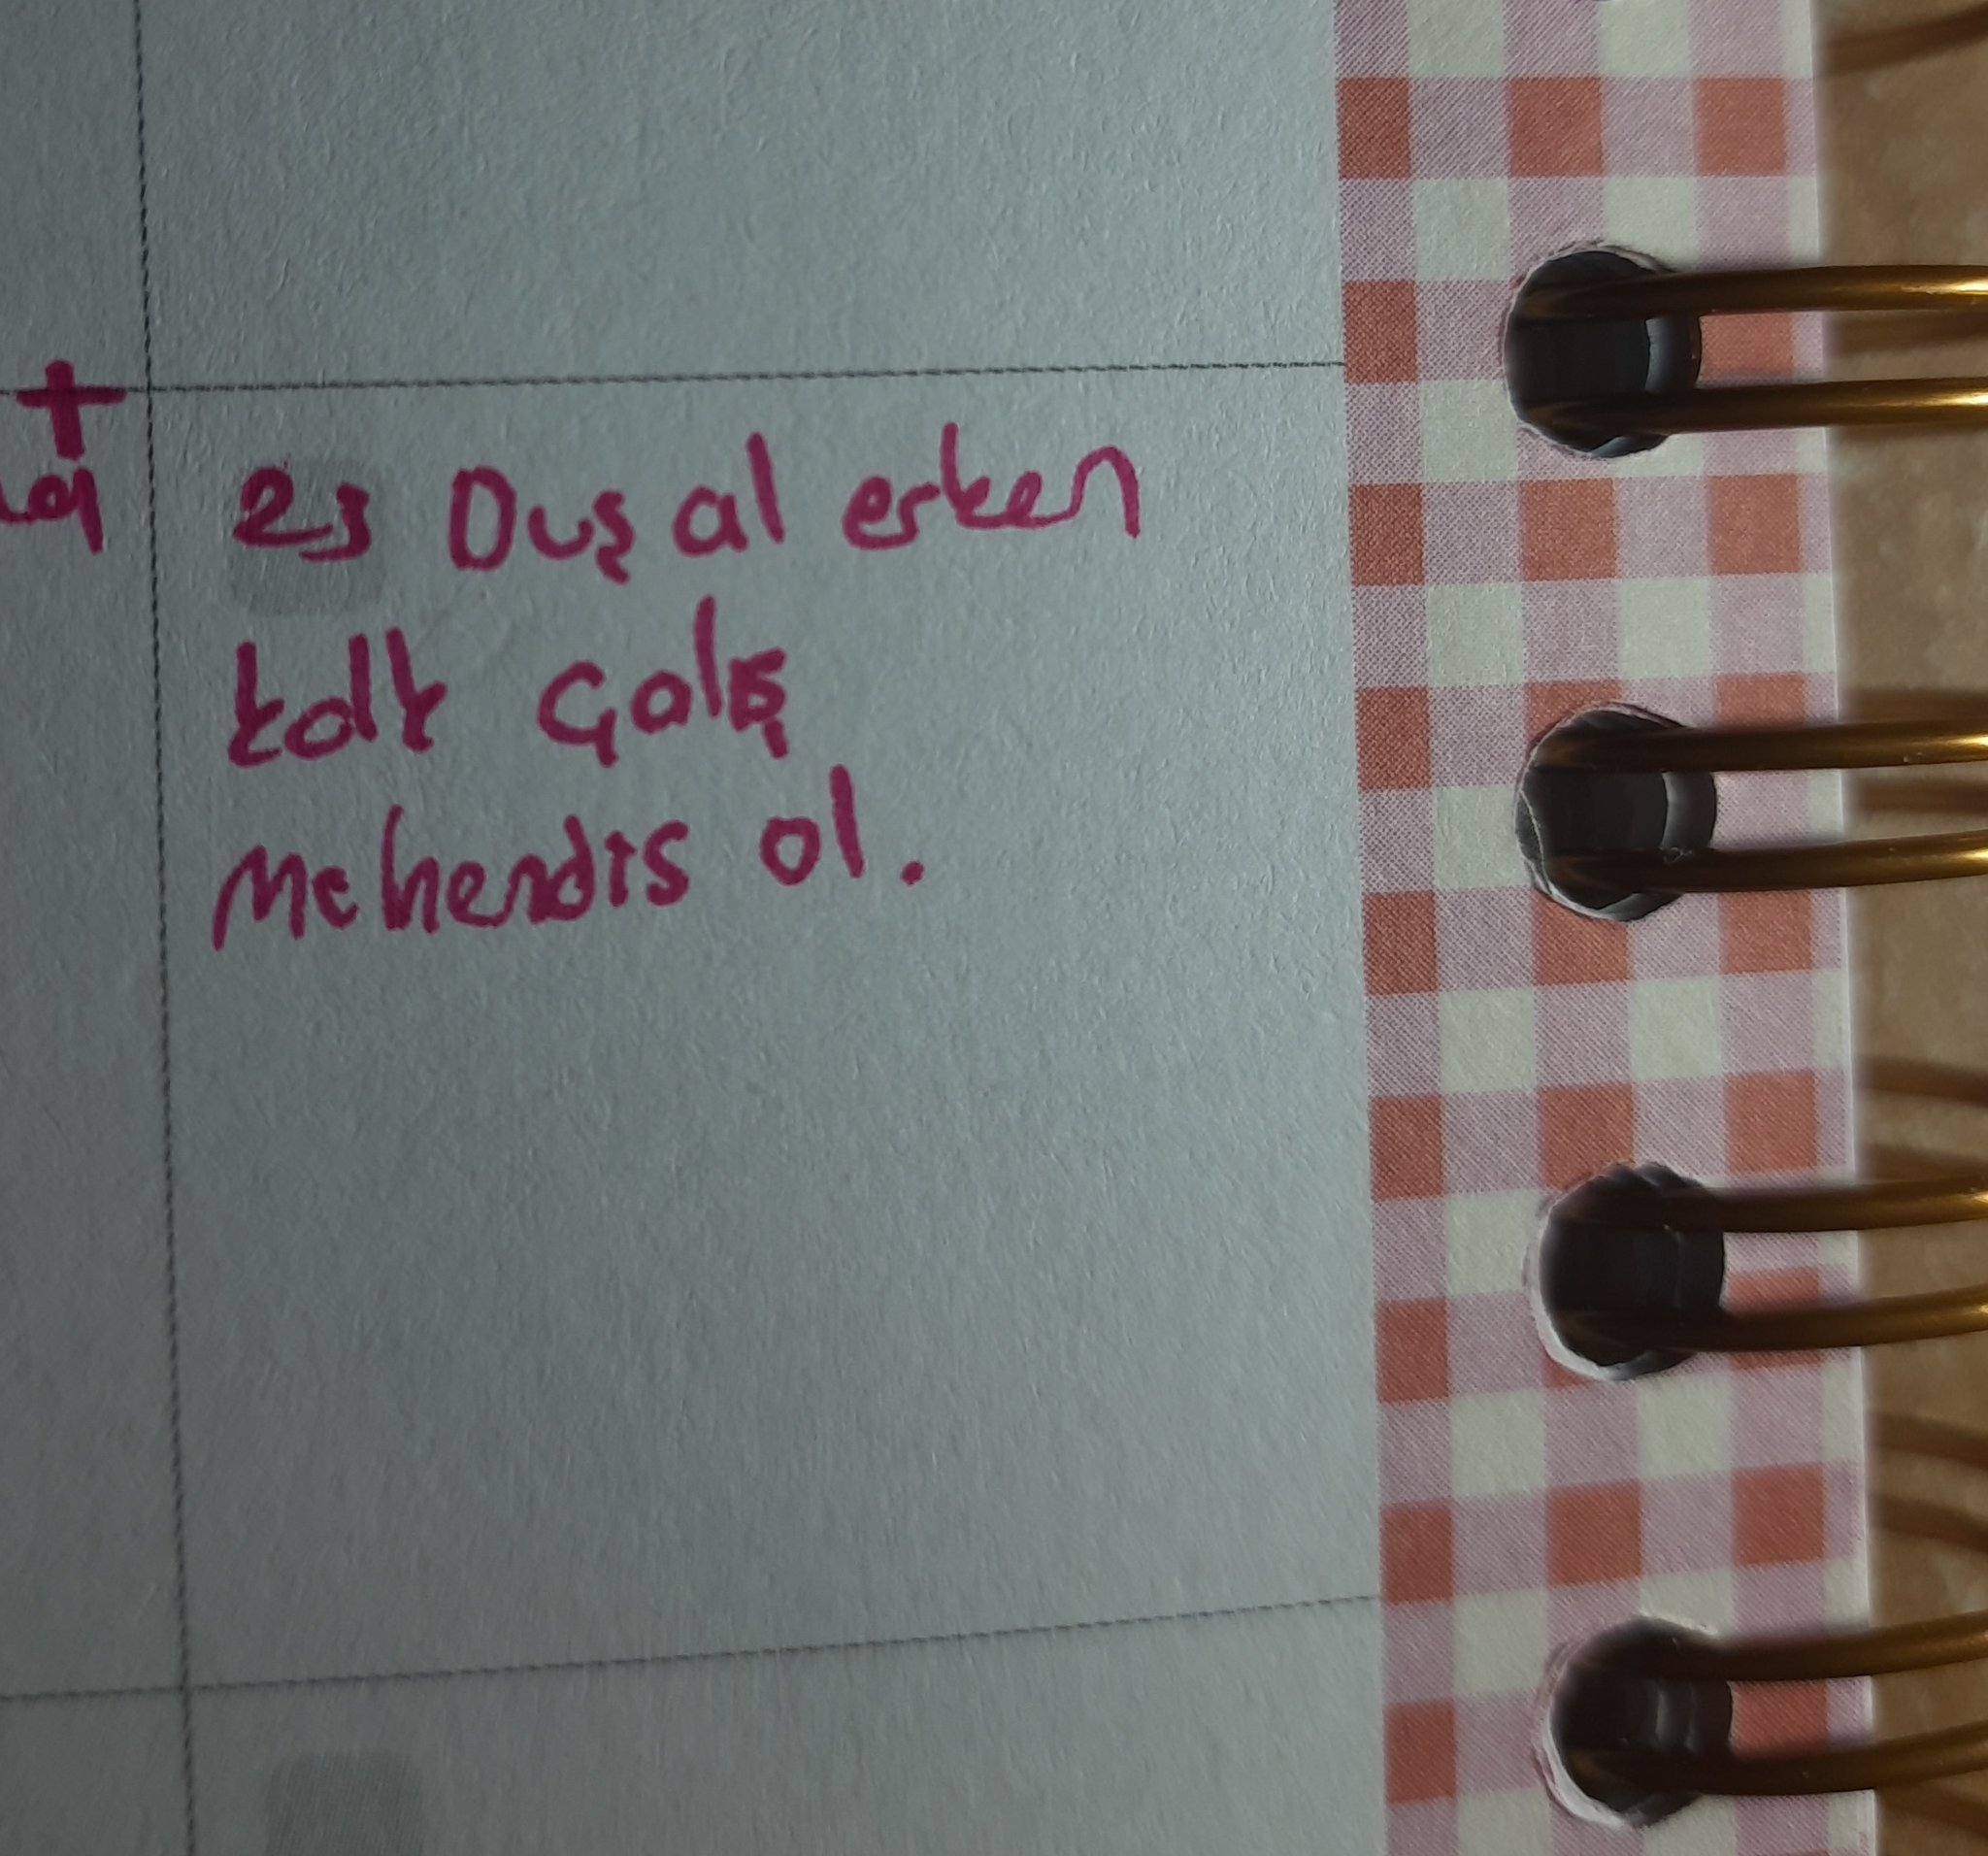 23 Duş al erken
kalk çalış
Mehendis ol.